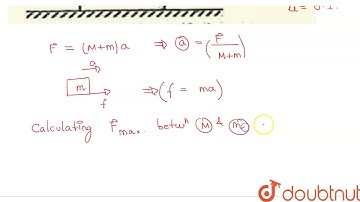 F = (M+m)a ⇒ a = (F / M+m)
a
m ⇒ (f = ma)
f
Calculating Fmax betwⁿ M & m
doubtnut